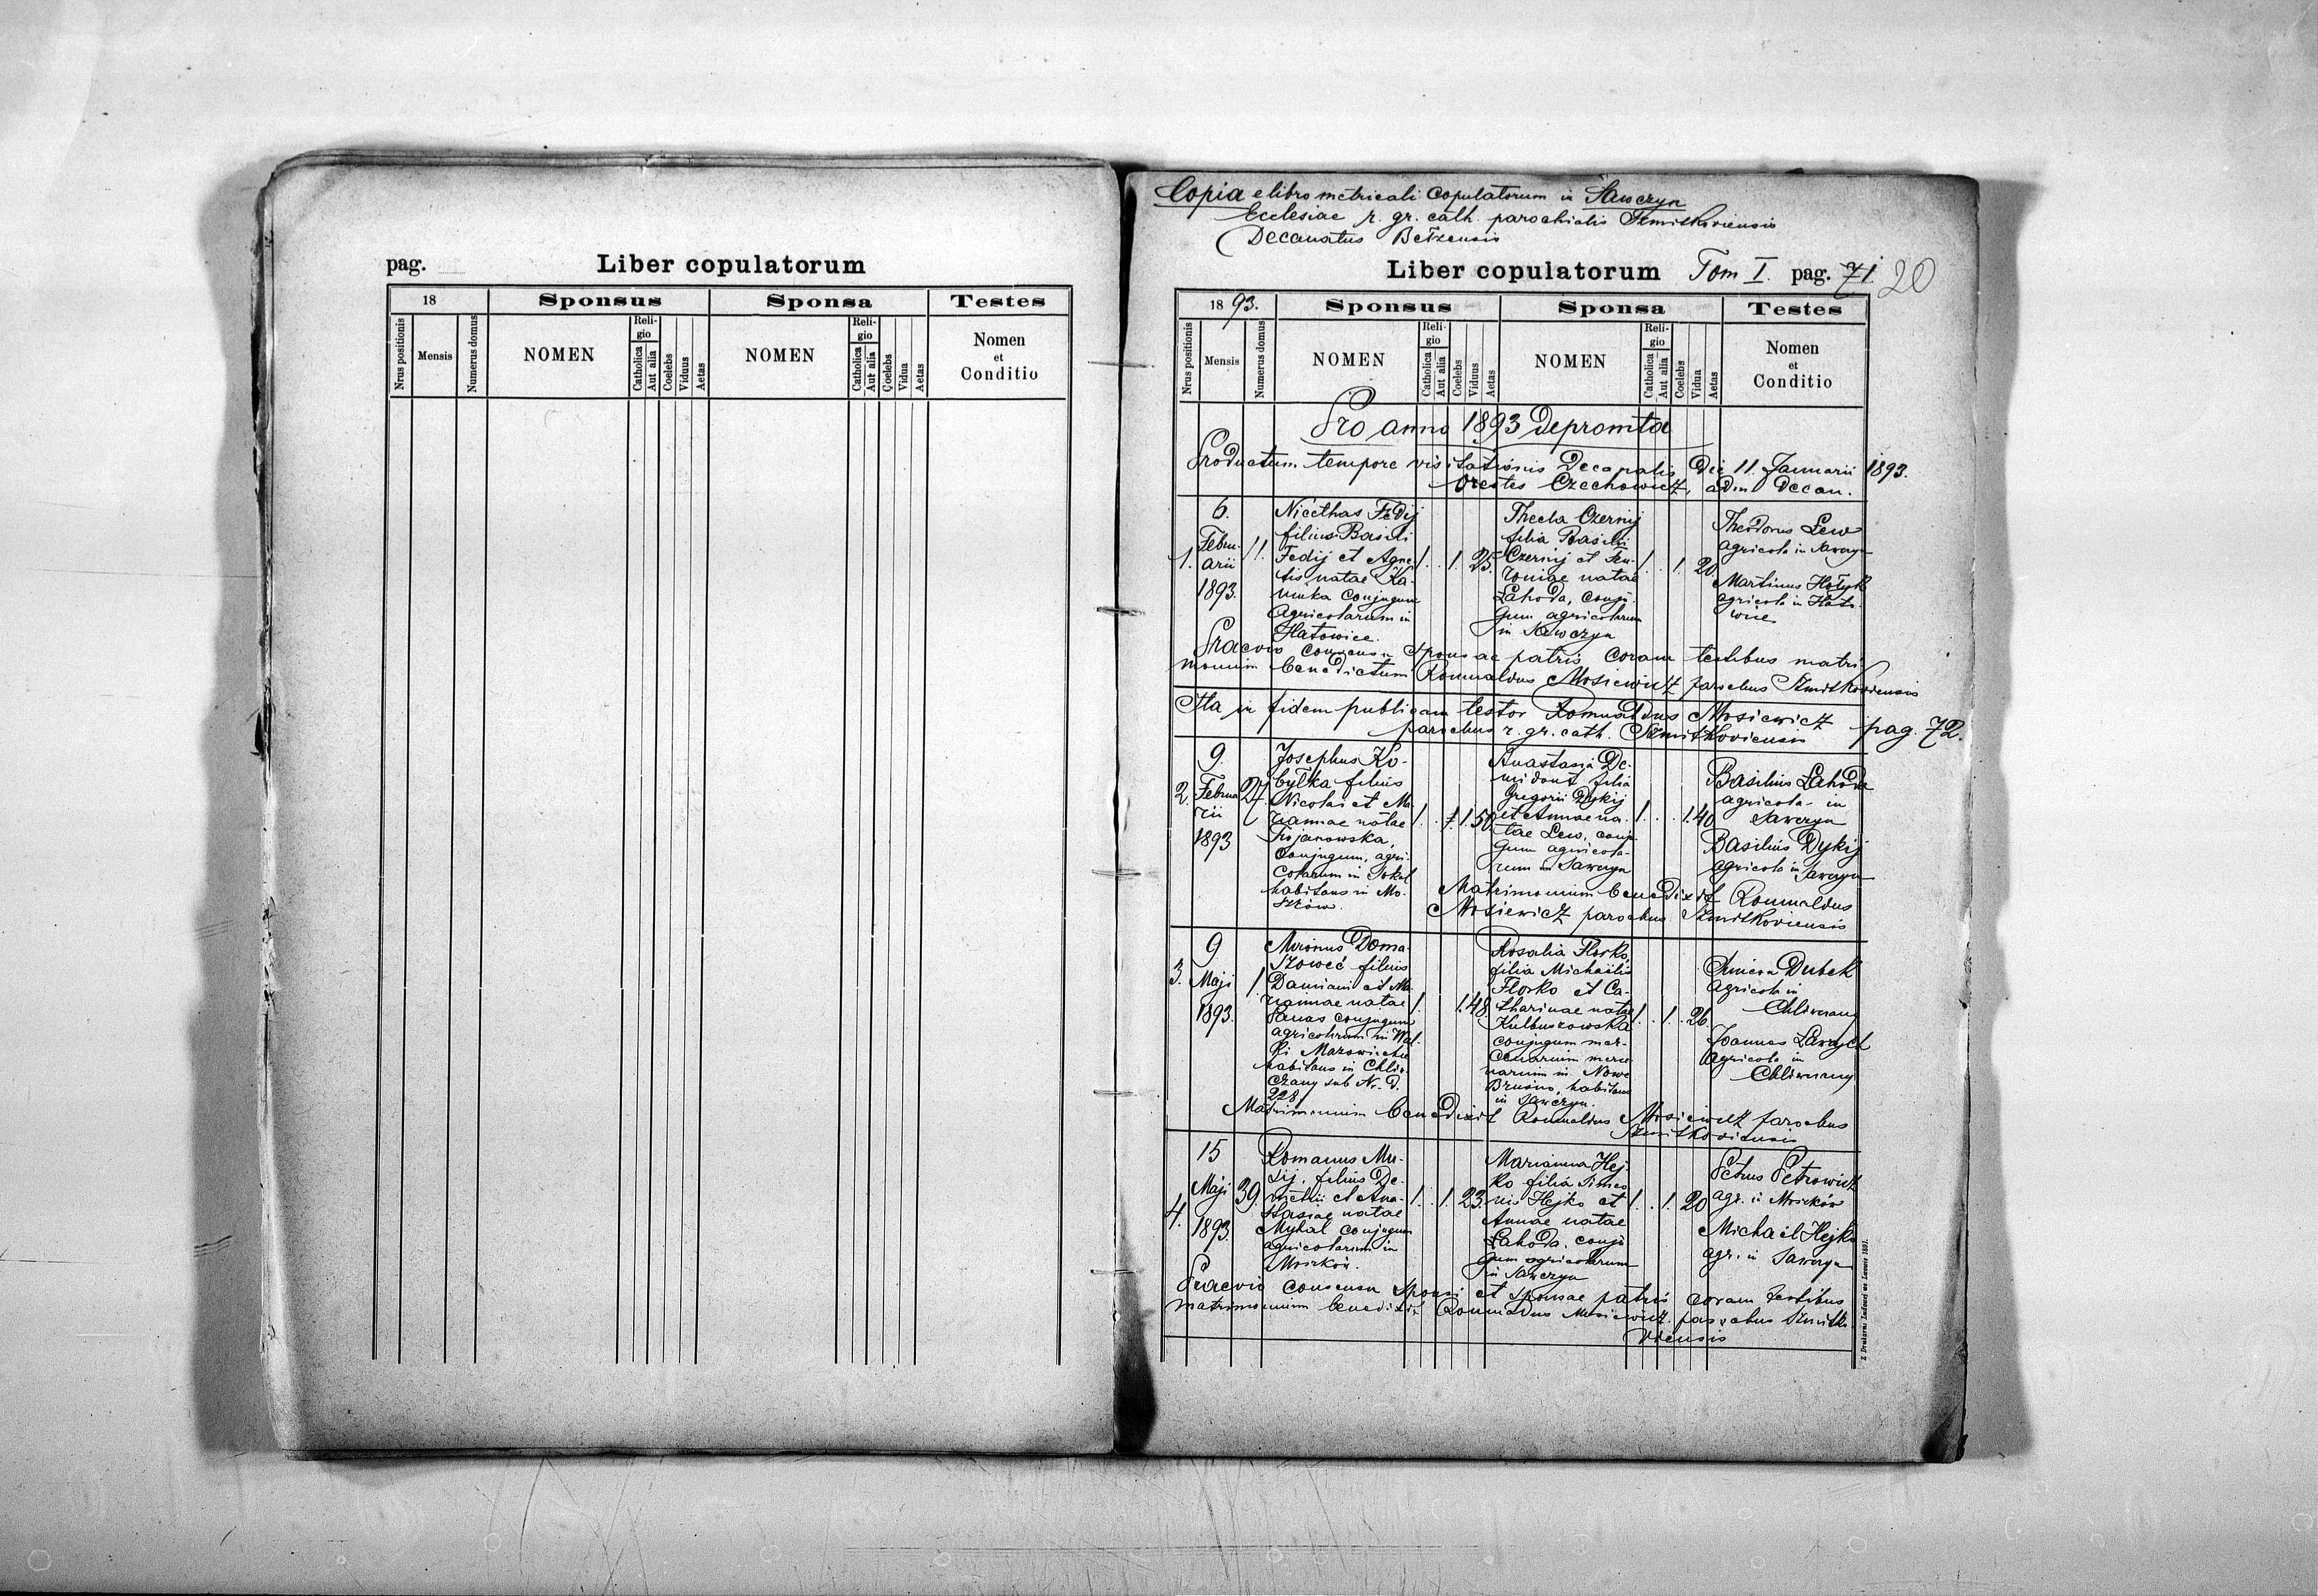 pag.
Liber copulatorum
18
Sponsus
Sponsa
Testes
Nrus positionis
Mensis
Numerus domus
NOMEN
Religio
Catholica
Aut alia
Coelebs
Viduus
Aetas
NOMEN
Religio
Catholica
Aut alia
Coelebs
Vidua
Aetas
Nomen
et
Conditio
Copia e libro metricali Copulatorum in Sawczyn
Ecclesiae r. gr. cath. parochialis Szmitkoviensis
Decanatus Bełzensis
Liber copulatorum Tom I. pag. 71. 20
1893.
Sponsus
Sponsa
Testes
Nrus positionis
Mensis
Numerus domus
NOMEN
Religio
Catholica
Aut alia
Coelebs
Viduus
Aetas
NOMEN
Religio
Catholica
Aut alia
Coelebs
Vidua
Aetas
Nomen
et
Conditio
Pro anno 1893 depromta
Productum tempore visitationis Decanalis Die 11. Januarii 1893.
Orestes Czechowicz, adm Decan.
1.
6.
Febru-
arii
1893.
11.
Nicethas Fedij
filius Basili
Fedij et Agne-
tis natae Ka-
minka Conjugum
Agricolarum in
Hatowice.
1. . 1. 25.
Thecla Czernij
filia Basili
Czernij et Feu-
roniae natae
Lahoda, conju-
gum agricolarum
in Sawczyn
1. . 1. 20.
Theodorus Lew
agricola in Sawczyn
Martinus Hołyk
agricola in Hato-
wice
Praevio consensu Sponsae patris coram testibus matri
monium benedictum Romualdus Mosiewicz parochus Szmitkoviensis
Ita in fidem publicam testor Romualdus Mosiewicz pag. 72.
parochus r. gr. cath. Szmitkoviensis
2.
9.
Februa
rii
1893
27
Josephus Ko-
byłka filius
Nicolai et Ma
riannae natae
Trojanowska,
Conjugum, agri-
colarum in Sokal
habitans in Mo-
szków.
1. . 1. 50
Anastasia De-
midont filia
Gregorii Dykij
et Annae na-
tae Lew, conju
gum agricola-
rum in Sawczyn
1. . . 1. 40
Basilius Lahoda
agricola in
Sawczyn
Basilius Dykij
agricola in Sawczyn
Matrimonium benedixit Romualdus
Mosiewicz parochus Szmitkoviensis
3.
9
Maji
1893.
1.
Mironus Doma-
szoweć filius
Damiani et Ma-
riannae natae
Panas conjugum
agricolarum in Wul-
ki Mazowiecke
habitans in Chliw-
czany sub Nr. d.
228
1. 1. 48.
Rosalia Florko,
filia Michaelis
Florko et Ca-
tharinae natae
Kulbuszowska
conjugum mer-
cenarum merce
narum in Nowe
Brusno, habitans
in Sawczyn.
1. . 1. 26.
Dubek
agricola in
Chliwczany
Joannes Ławryk
agricola in
Chliwczany
Matrimonium benedixit Romualdus Mosiewicz parochus
Szmitkoviensis
4.
15
Maji
1893.
39.
Romanus Mu-
dij, filius De-
metrii et Ana-
stasiae natae
Myhal conjugum
agricolarum in
Moszków.
1. . 1. 23.
Marianna Hej-
ko filia Simeo
nis Hejko et
Annae natae
Lahoda, conju
gum agricolarum
in Sawczyn
1. . 1. 20
Petrus Petrowicz
agr. in Moszków
Michaël Hejko
agr. in Sawczyn
Praevio consensu Sponsi et Sponsae patris coram testibus
matrimonium benedixit Romualdus Mosiewicz parochus Szmitko
viensis
Z Drukarni Ludowej we Lwowie 1891.